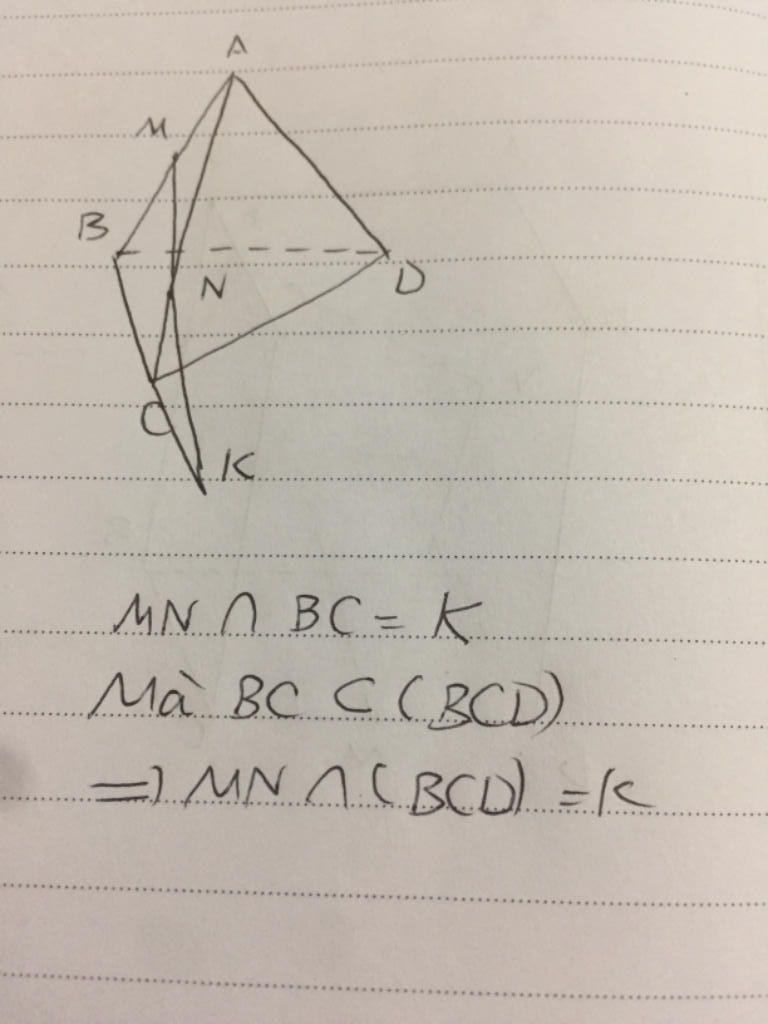 A
M
B
N
D
C
K
MN ∩ BC = K
Mà BC ⊂ (BCD)
=> MN ∩ (BCD) = K